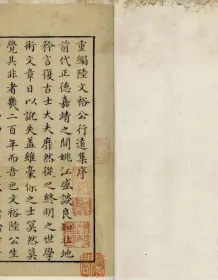 重編陸文裕公行遠集序
前代正德嘉靖之間姚江盛談良知北地
矜言復古士大夫靡然從之終明之世學
術文章日以訛失蓋雖豪傑之士冥然莫
覺其非者幾二百年而吾邑文裕陸公生